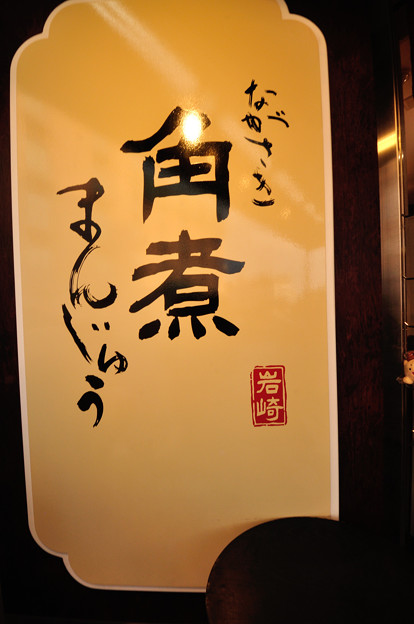 ながさき
角煮
まんじゅう
岩崎